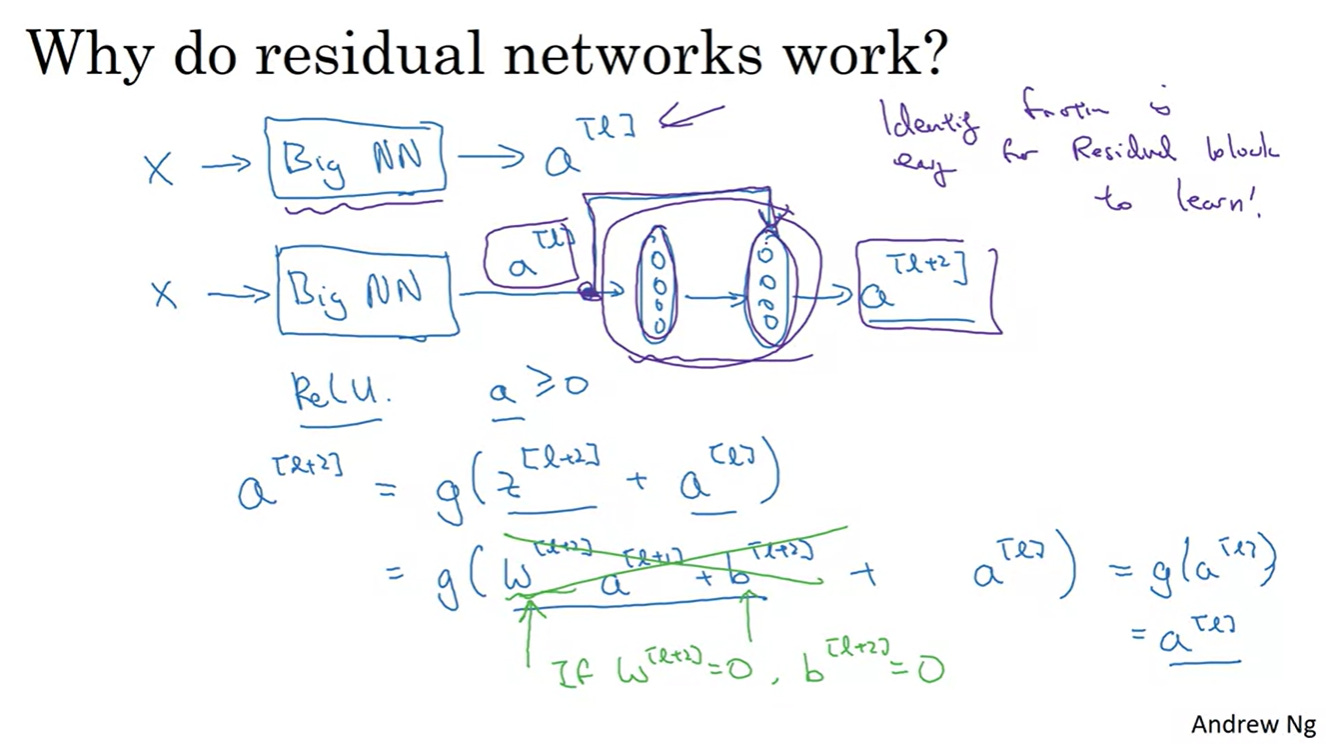 Why do residual networks work?
X → Big NN → a^[l] ←
Identity function is
easy for Residual block
to learn!
X → Big NN a^[l] → a^[l+2]
ReLU. a ≥ 0
a^[l+2] = g(z^[l+2] + a^[l])
= g(W^[l+2] a^[l+1] + b^[l+2] + a^[l]) = g(a^[l])
= a^[l]
If W^[l+2] = 0, b^[l+2] = 0
Andrew Ng